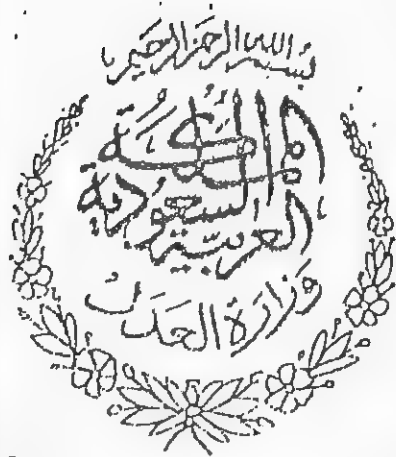 بسم الله الرحمن الرحيم
المملكة
العربية السعودية
وزارة العدل